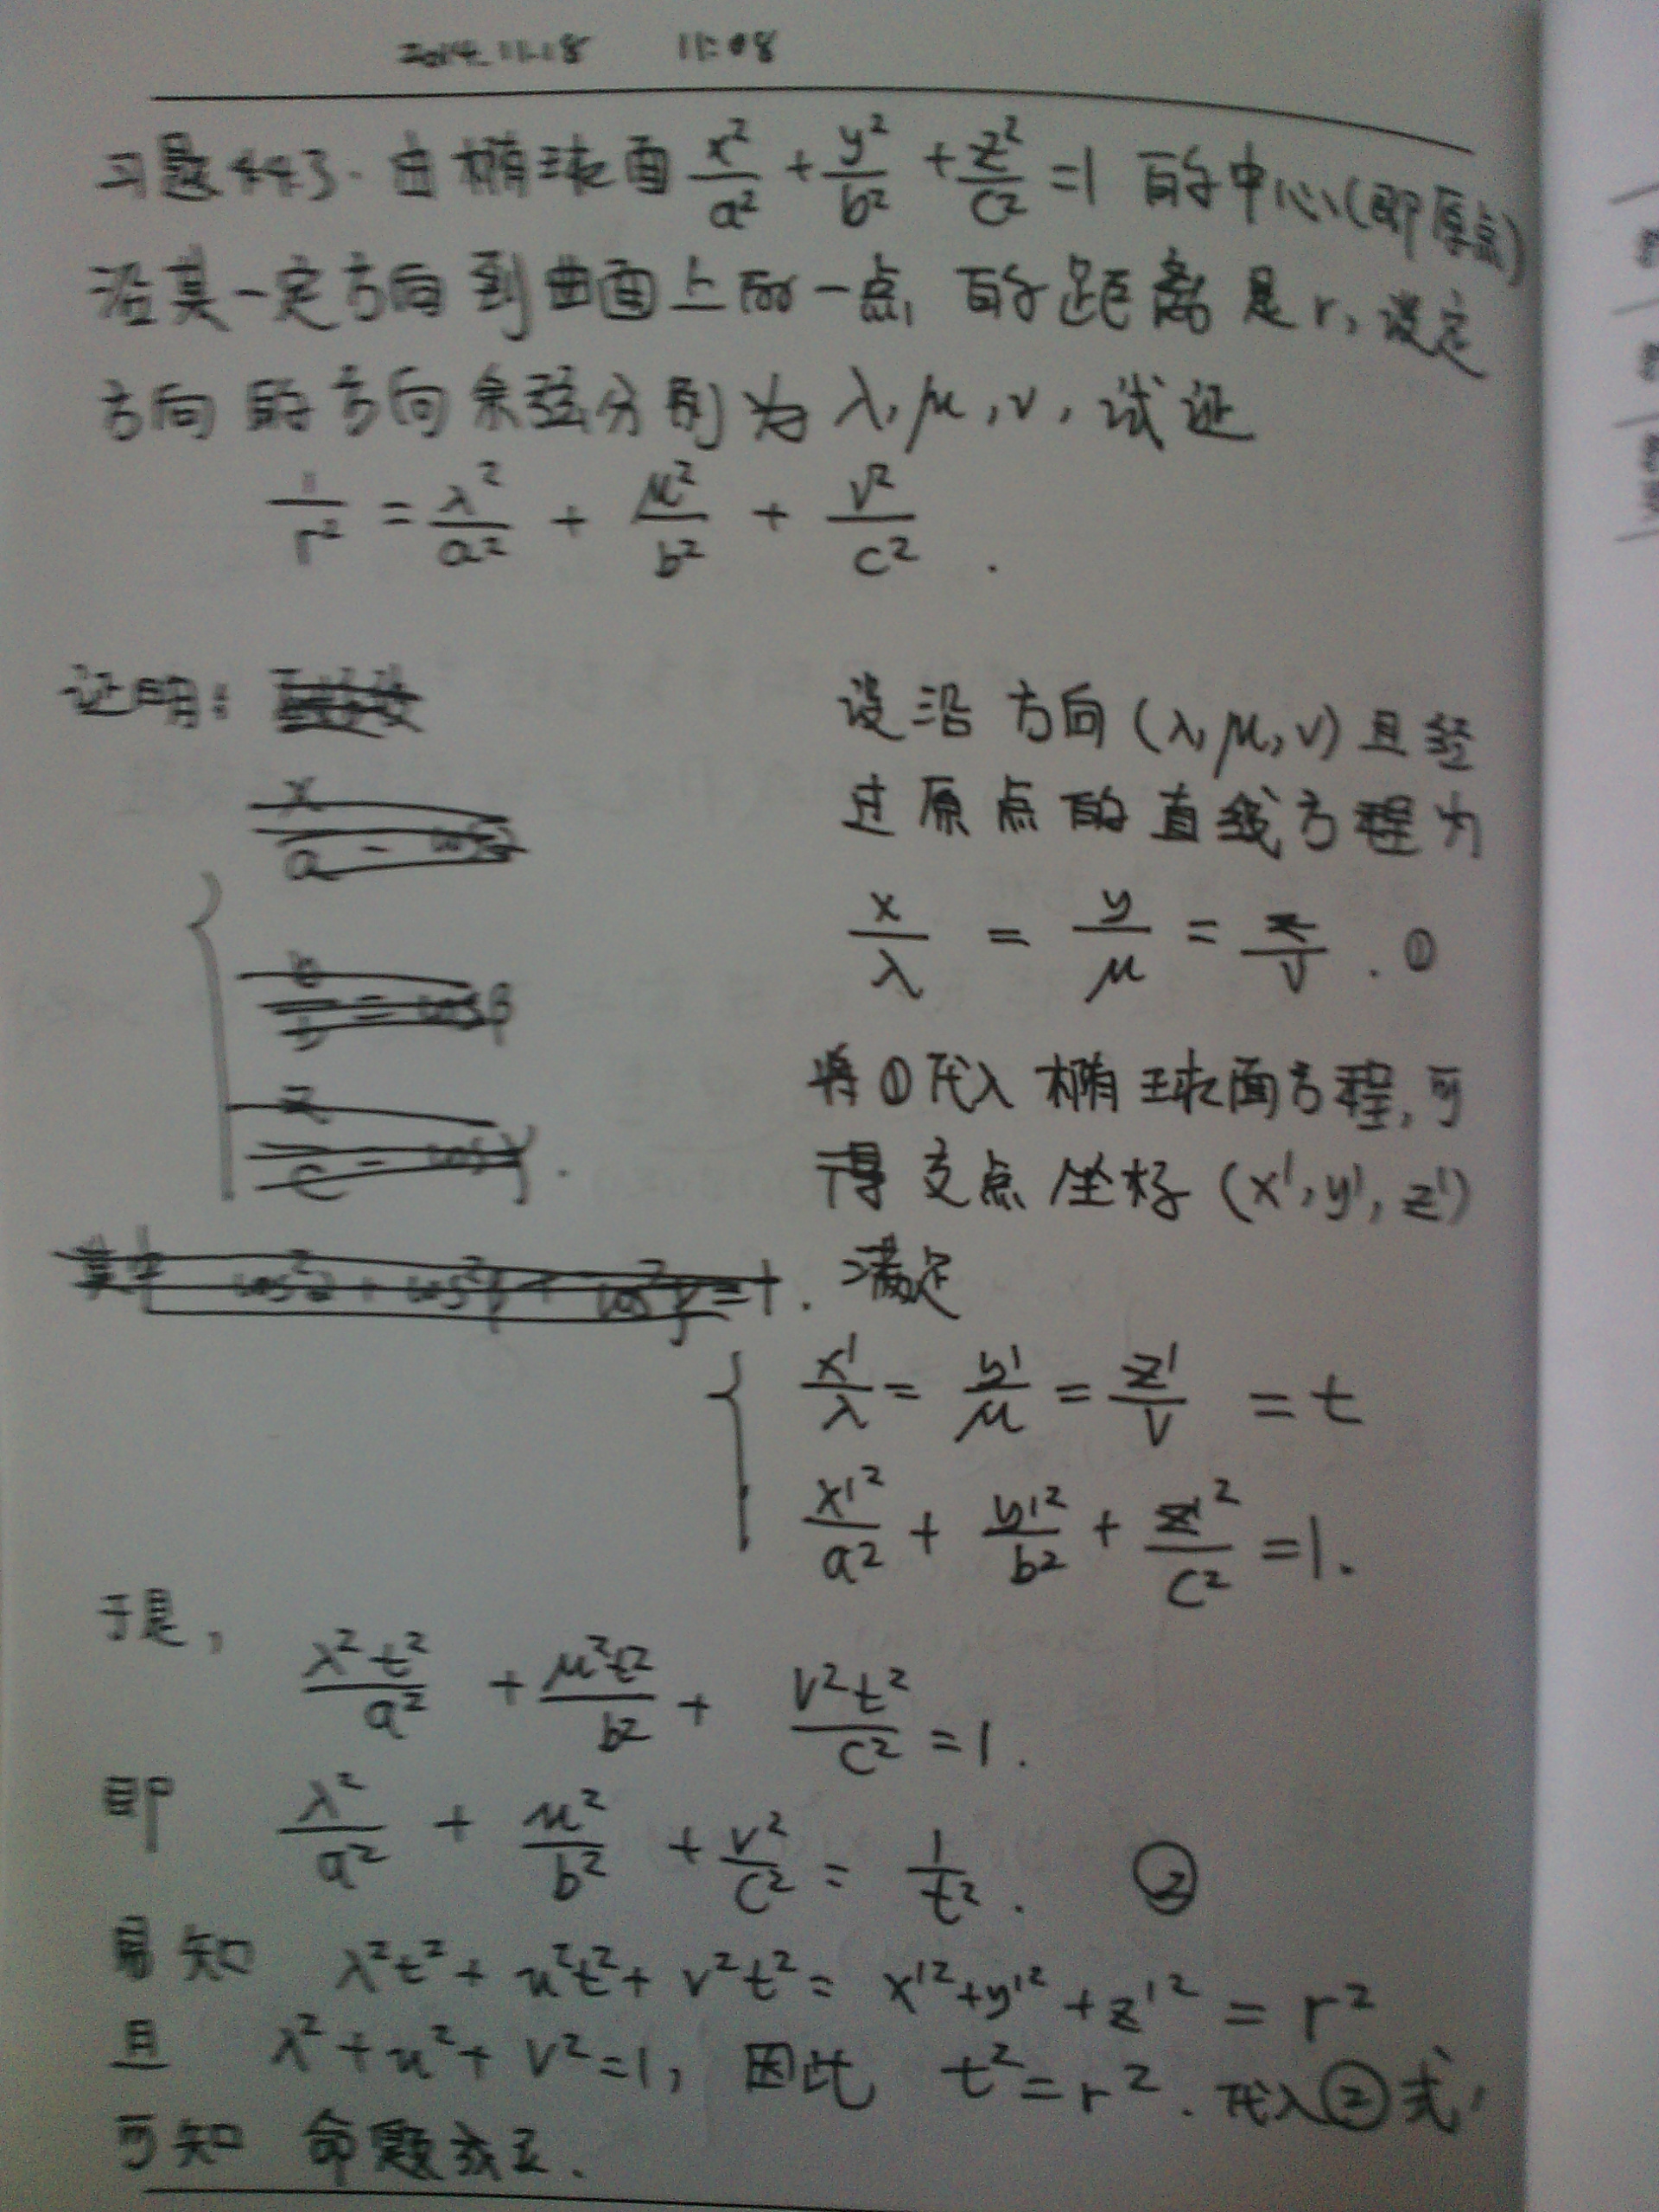 2014.11.18 11:08
习题4.4.3. 由椭球面 x²/a² + y²/b² + z²/c² =1 的中心(即原点)
沿某一定方向到曲面上的一点的距离是r,设定
方向的方向余弦分别为λ,μ,ν,试证
1/r² = λ²/a² + μ²/b² + ν²/c² .
证明:
设沿方向(λ,μ,ν)且经
过原点的直线方程为
x/λ = y/μ = z/ν . ①
将①代入椭球面方程,可
得交点坐标(x',y',z')
满足
x'/λ = y'/μ = z'/ν = t
x'²/a² + y'²/b² + z'²/c² =1.
于是,
λ²t²/a² + μ²t²/b² + ν²t²/c² =1.
即 λ²/a² + μ²/b² + ν²/c² = 1/t² . ②
易知 λ²t²+μ²t²+ν²t²= x'²+y'²+z'² = r²
且 λ²+μ²+ν²=1, 因此 t²=r². 代入②式,
可知命题成立.